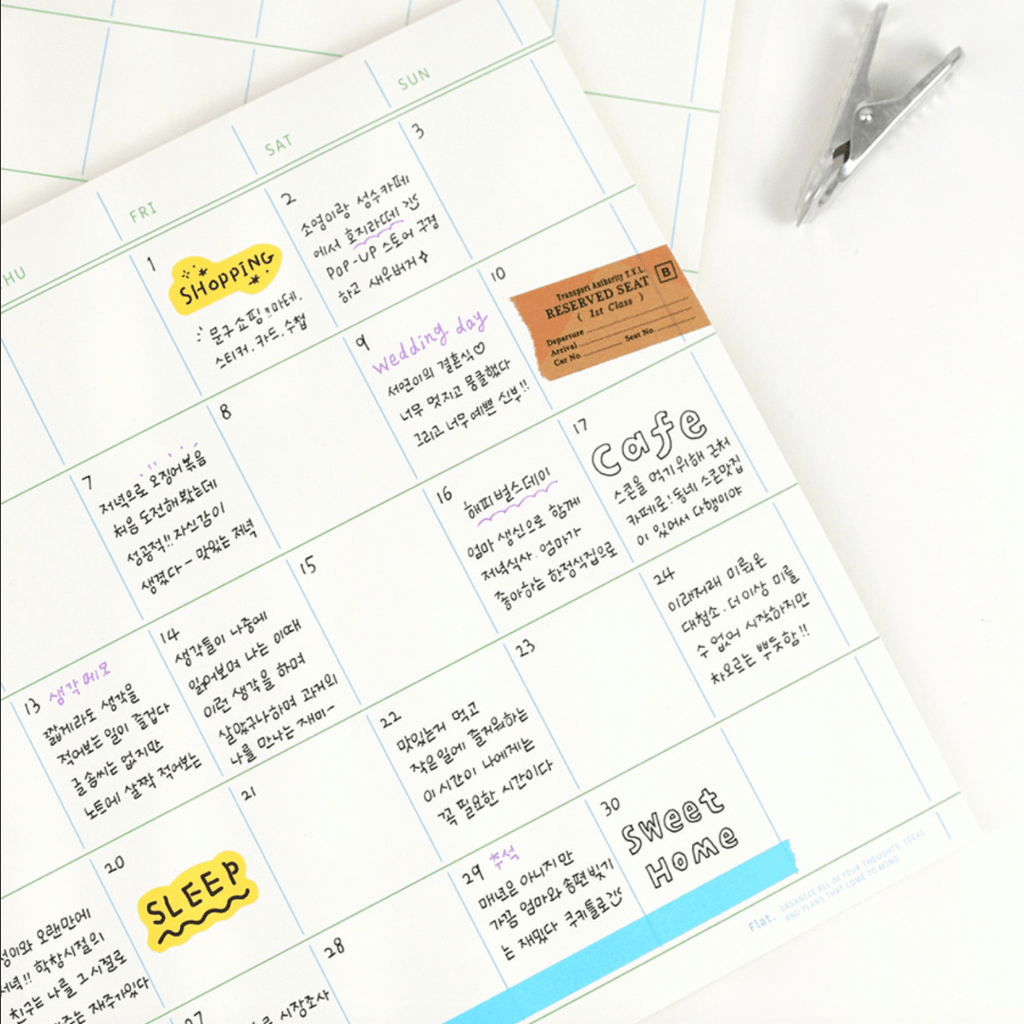 HU
FRI
SAT
SUN
1
SHOPPING
문구쇼핑 : 마테,
스티커, 카드, 수첩
2
소영이랑 성수카페
에서 호지라떼 간후
POP-UP 스토어 구경
하고 새우버거
3
7
저녁으로 오징어볶음
처음 도전해봤는데
성공적!! 자신감이
생겼다 ~ 맛있는 저녁
8
9
wedding day
서연이의 결혼식♡
너무 멋지고 뭉클했다
그리고 너무 예쁜 신부!!
10
Transport Authority T.V.L.
RESERVED SEAT
B
( 1st Class )
Departure
Arrival
Car No. Seat No.
13 생각메모
짧게라도 생각을
적어보는 일이 즐겁다
글솜씨는 없지만
노트에 살짝 적어보는
14
생각들이 나중에
읽어보며 나는 이때
이런 생각을 하며
살았구나하며 과거의
나를 만나는 재미~
15
16
해피벌스데이
엄마 생신으로 함께
저녁식사. 엄마가
좋아하는 한정식집으로
17
Cafe
스콘을 먹기위해 근처
카페로! 동네 스콘맛집
이 있어서 다행이야
20
오랜만에
저녁!! 학창시절의
친구는 나를 그 시절로
재주가있다
21
SLEEP
22
맛있는거 먹고
작은일에 즐거워하는
이 시간이 나에게는
꼭 필요한 시간이다
23
24
이래저래 미뤄온
대청소. 더이상 미룰
수 없어 시작하지만
차오르는 뿌듯함!!
27
시장조사
28
29 추석
매년은 아니지만
가끔 엄마와 송편빚기
는 재밌다 쿠키틀로
30
Sweet
Home
Flat.
ORGANIZE ALL OF YOUR THOUGHTS, IDEAS
AND PLANS THAT COME TO MIND.